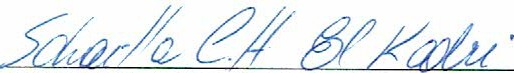 Scharlla C.H El Kadri